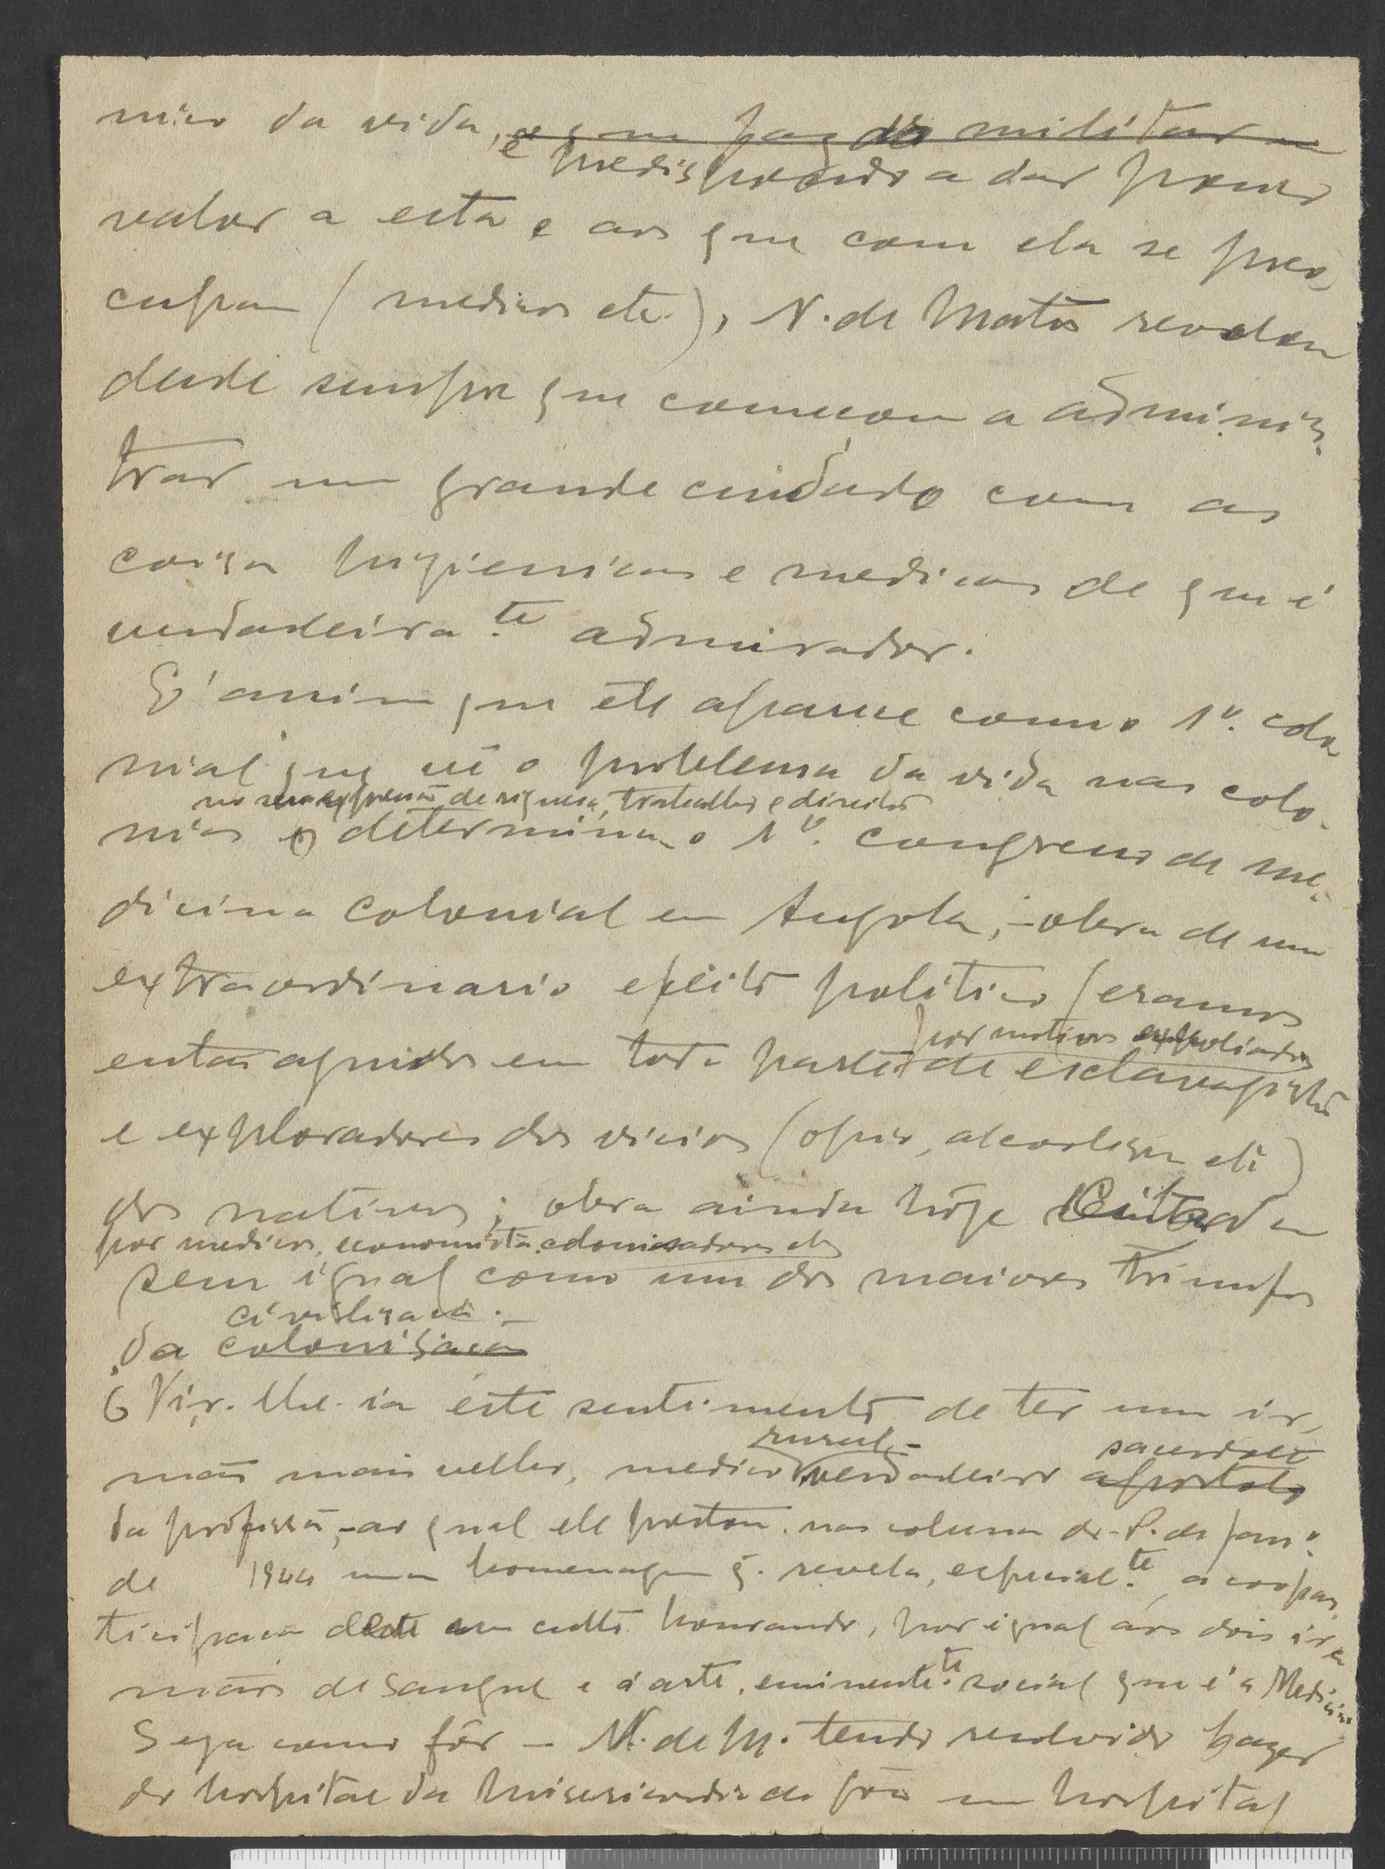 mico da vida, e que faz do militar
e predispondo a dar pouco
valor a esta e aos que com ela se preo,
cupam (medicos etc.), N. de Matos revelou
desde sempre que começou a adminis,
trar um grande cuidado com as
coisas higienicas e medicas de que é
verdadeira.te admirador.
E' assim que ele aparece como o 1º. colo
nial que vê o problema da vida nas colo,
na sua expressão de riquesa, trabalho e direitos
nias e determina o 1º. congresso de me,
dicina colonial em Angola, - obra de um
extraordinario efeito politico (eramos
por motivos
então apuidos em toda parte de esclavagistas
e exploradores dos vicios (opio, alcoolismo etc)
dos nativos; obra ainda hoje citada
por medicos, economistas colonisadores etc
sem igual como um dos maiores triunfos
civilisação.
da colonisação
Vir. lhe. ia este sentimento de ter um ir,
rural - sacerdote
mão mais velho, medico verdadeiro apostolo
da profissão, - ao qual ele prestou nas colunas do P. de Jan.º
de 1944 uma homenagem q. revela, especial.te a copar,
ticipação deste em culto honrando, por igual aos dois ir,
mãos de sangue e á arte, eminente.te social que é a Medicina
Seja como fôr - N. de M. tendo resolvido fazer
do hospital da Misericordia de um hospital